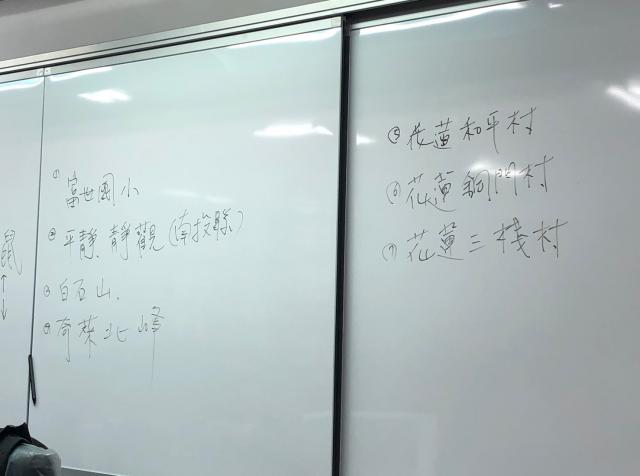 鼠
① 富世國小
② 平靜、靜觀（南投縣）
③ 白石山、
④ 奇萊北峰
⑤ 花蓮和平村
⑥ 花蓮銅門村
⑦ 花蓮三棧村